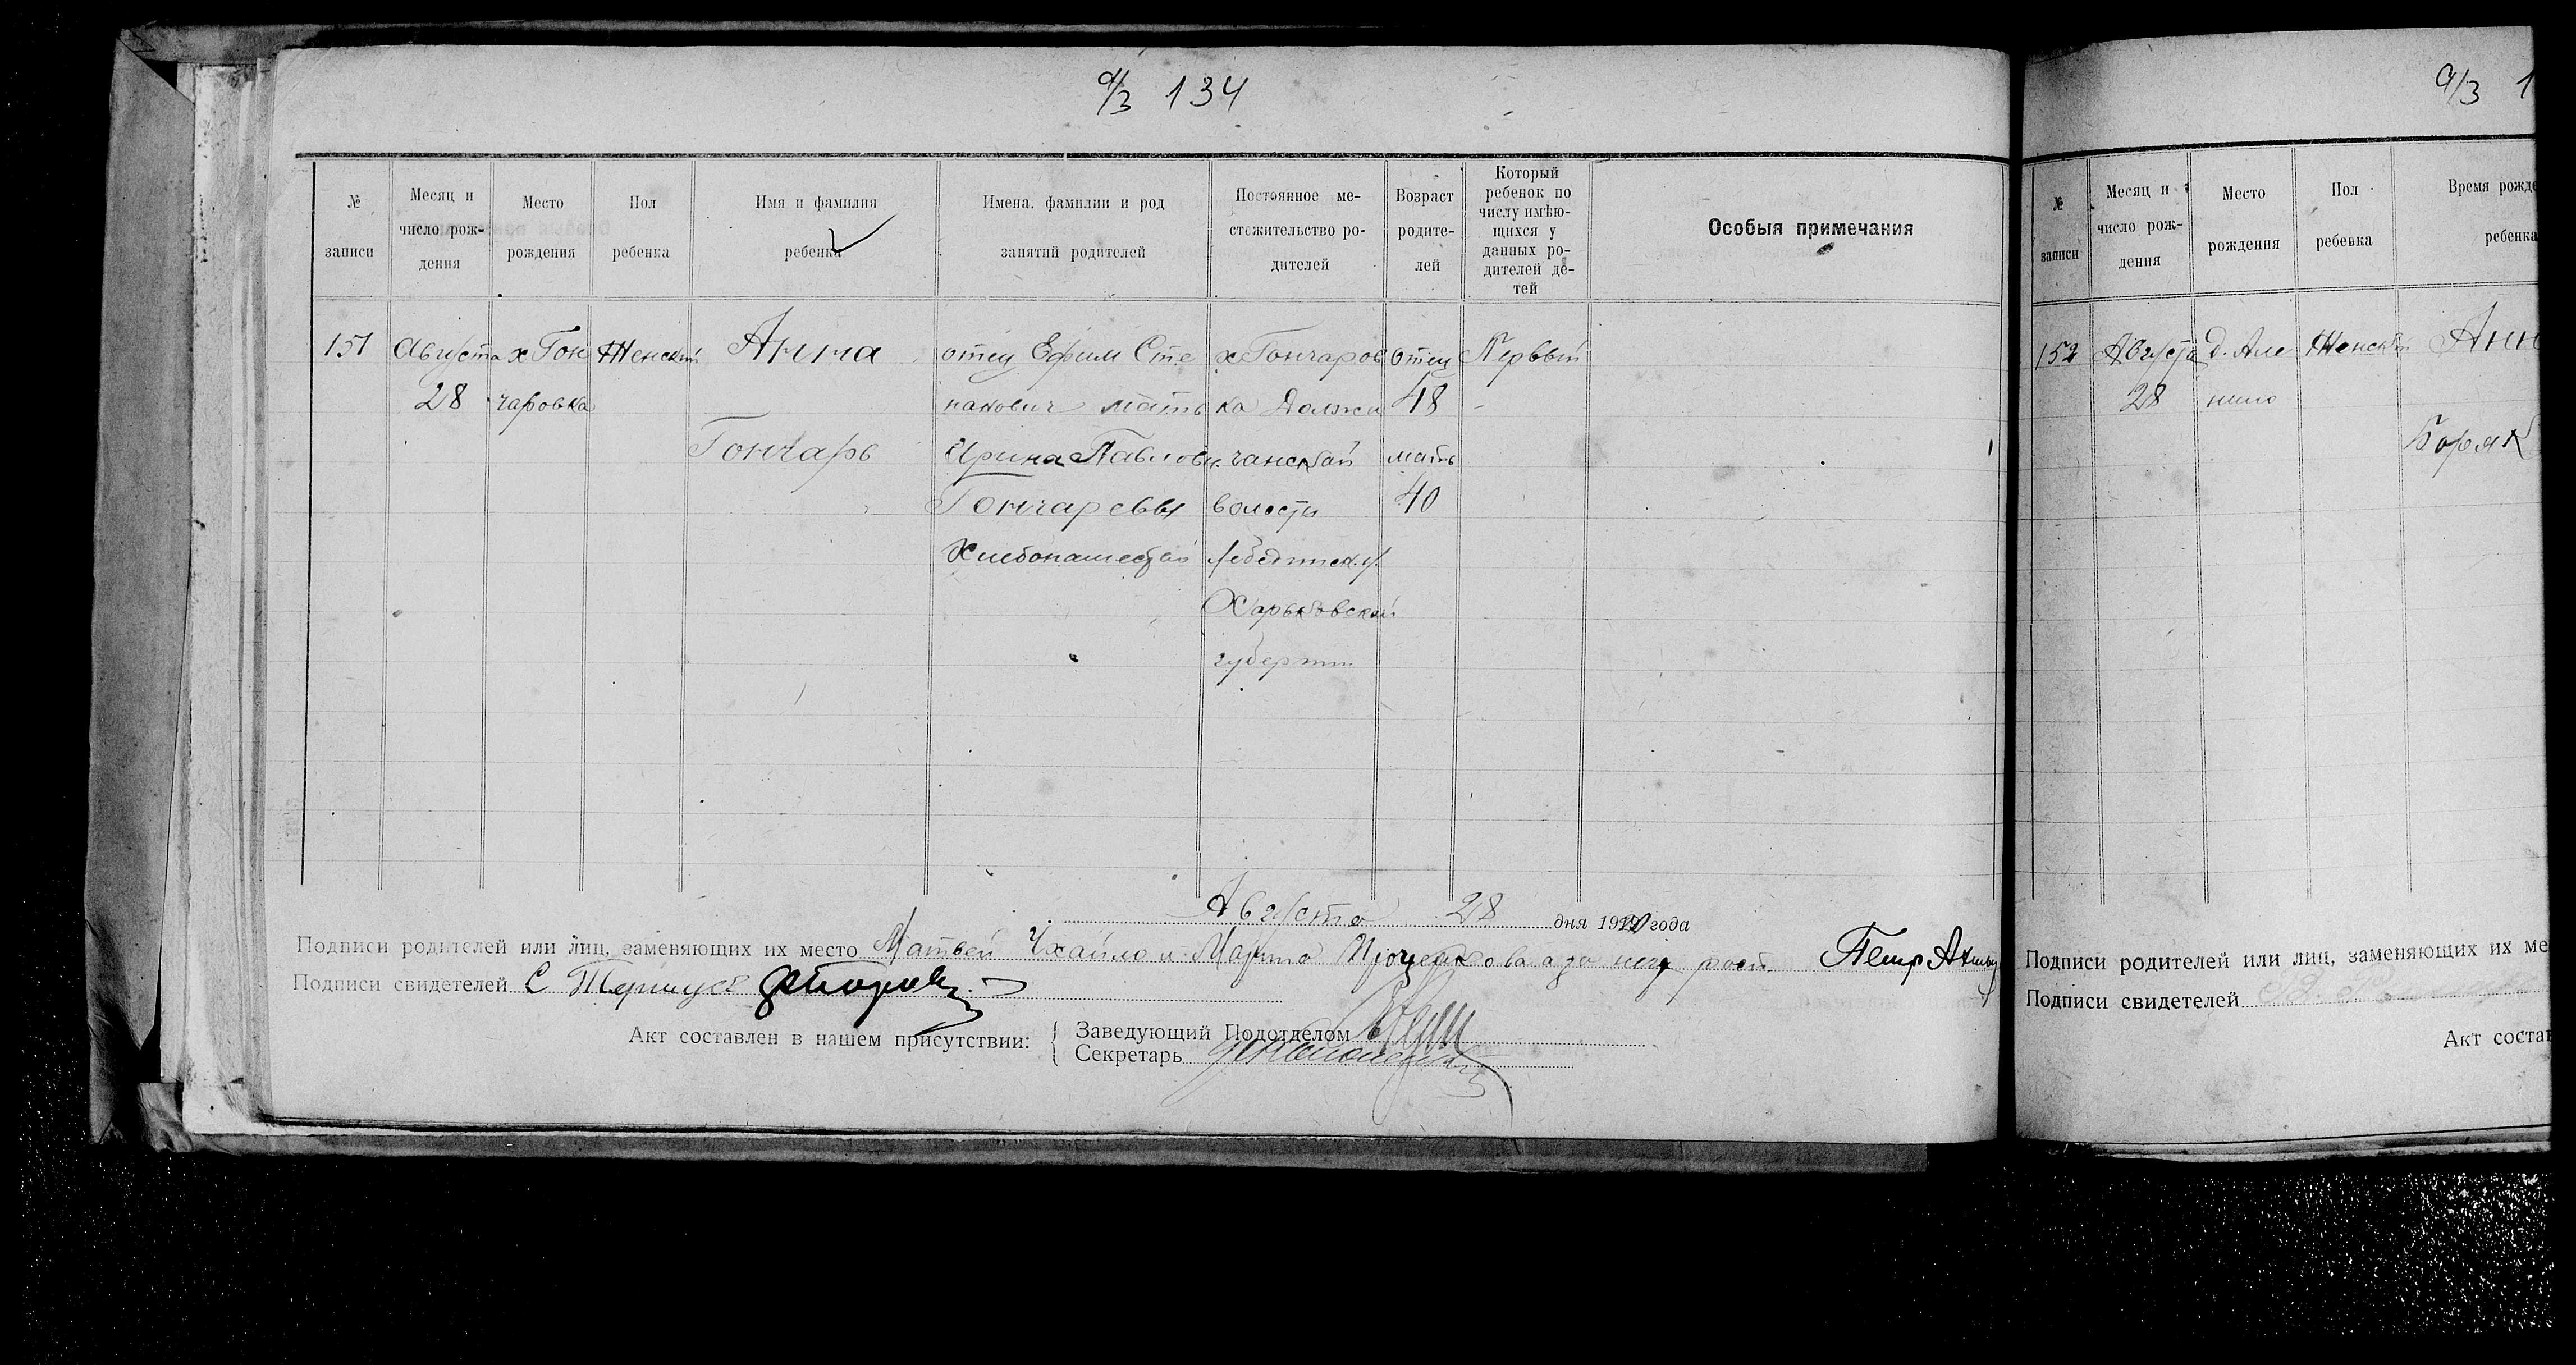 а/з 134
№ записи
Месяц и число рож-дения
Место рождения
Пол ребенка
Имя и фамилия ребенка
Имена. фамилии и род занятий родителей
Постоянное ме-стожительство ро-дителей
Возраст родите-лей
Который ребенок по числу имѣю-щихся у данных ро-дителей де-тей
Особыя примечания
151
Августа
28
х Гон
чаровка
Женский
Анна
Гончарь
отец Ефим Сте
панович мать
Ирина Павловн.
Гончаревы
Хлебопашество
х Гончаров
ка Должи
чанской
волости
Лебединск. у.
Харьковской
губернии
отец
48
мать
40
Первый
Августа 28 дня 1920 года
Подписи родителей или лиц, заменяющих их место Матвей и Марта рост. Петр
Подписи свидетелей С
Акт составлен в нашем присутствии:
Заведующий Подотделом
Секретарь
а/з 1
№ записи
Месяц и число рож-дения
Место рождения
Пол ребенка
Время рожде
ребенка
152
Августа
28
д. Але
нино
Женский
Анн
Боряк
Подписи родителей или лиц, заменяющих их ме
Подписи свидетелей
Акт состав